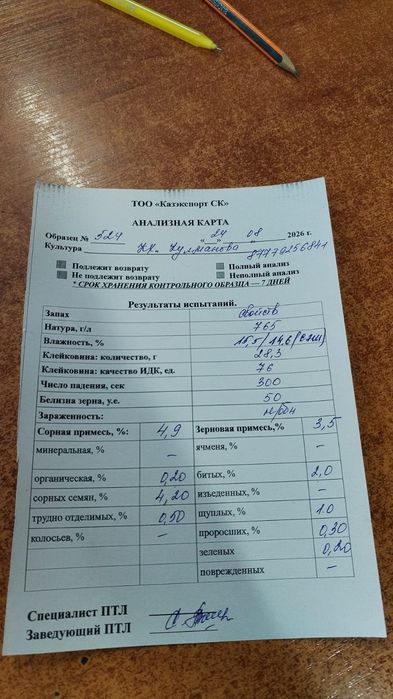 ТОО «Катэкспорт СК»
АНАЛИЗНАЯ КАРТА
Образец № 524 « 24 » 08 2026 г.
Культура Кулманова 87779256841
Подлежит возврату Полный анализ
Не подлежит возврату Неполный анализ
* СРОК ХРАНЕНИЯ КОНТРОЛЬНОГО ОБРАЗЦА — 7 ДНЕЙ
Результаты испытаний.
Запах свойств
Натура, г/л 765
Влажность, % 15,5/14,6
Клейковина: количество, г 28,3
Клейковина: качество ИДК, ед. 76
Число падения, сек 300
Белизна зерна, у.е. 50
Зараженность: н/обн
Сорная примесь, %: 4,9 Зерновая примесь,% 3,5
минеральная, % – ячменя, % –
органическая, % 0,20 битых, % 2,0
сорных семян, % 4,20 изъеденных, % –
трудно отделимых, % 0,50 щуплых, % 1.0
колосьев, % – проросших, % 0,30
зеленых 0,20
поврежденных –
Специалист ПТЛ
Заведующий ПТЛ